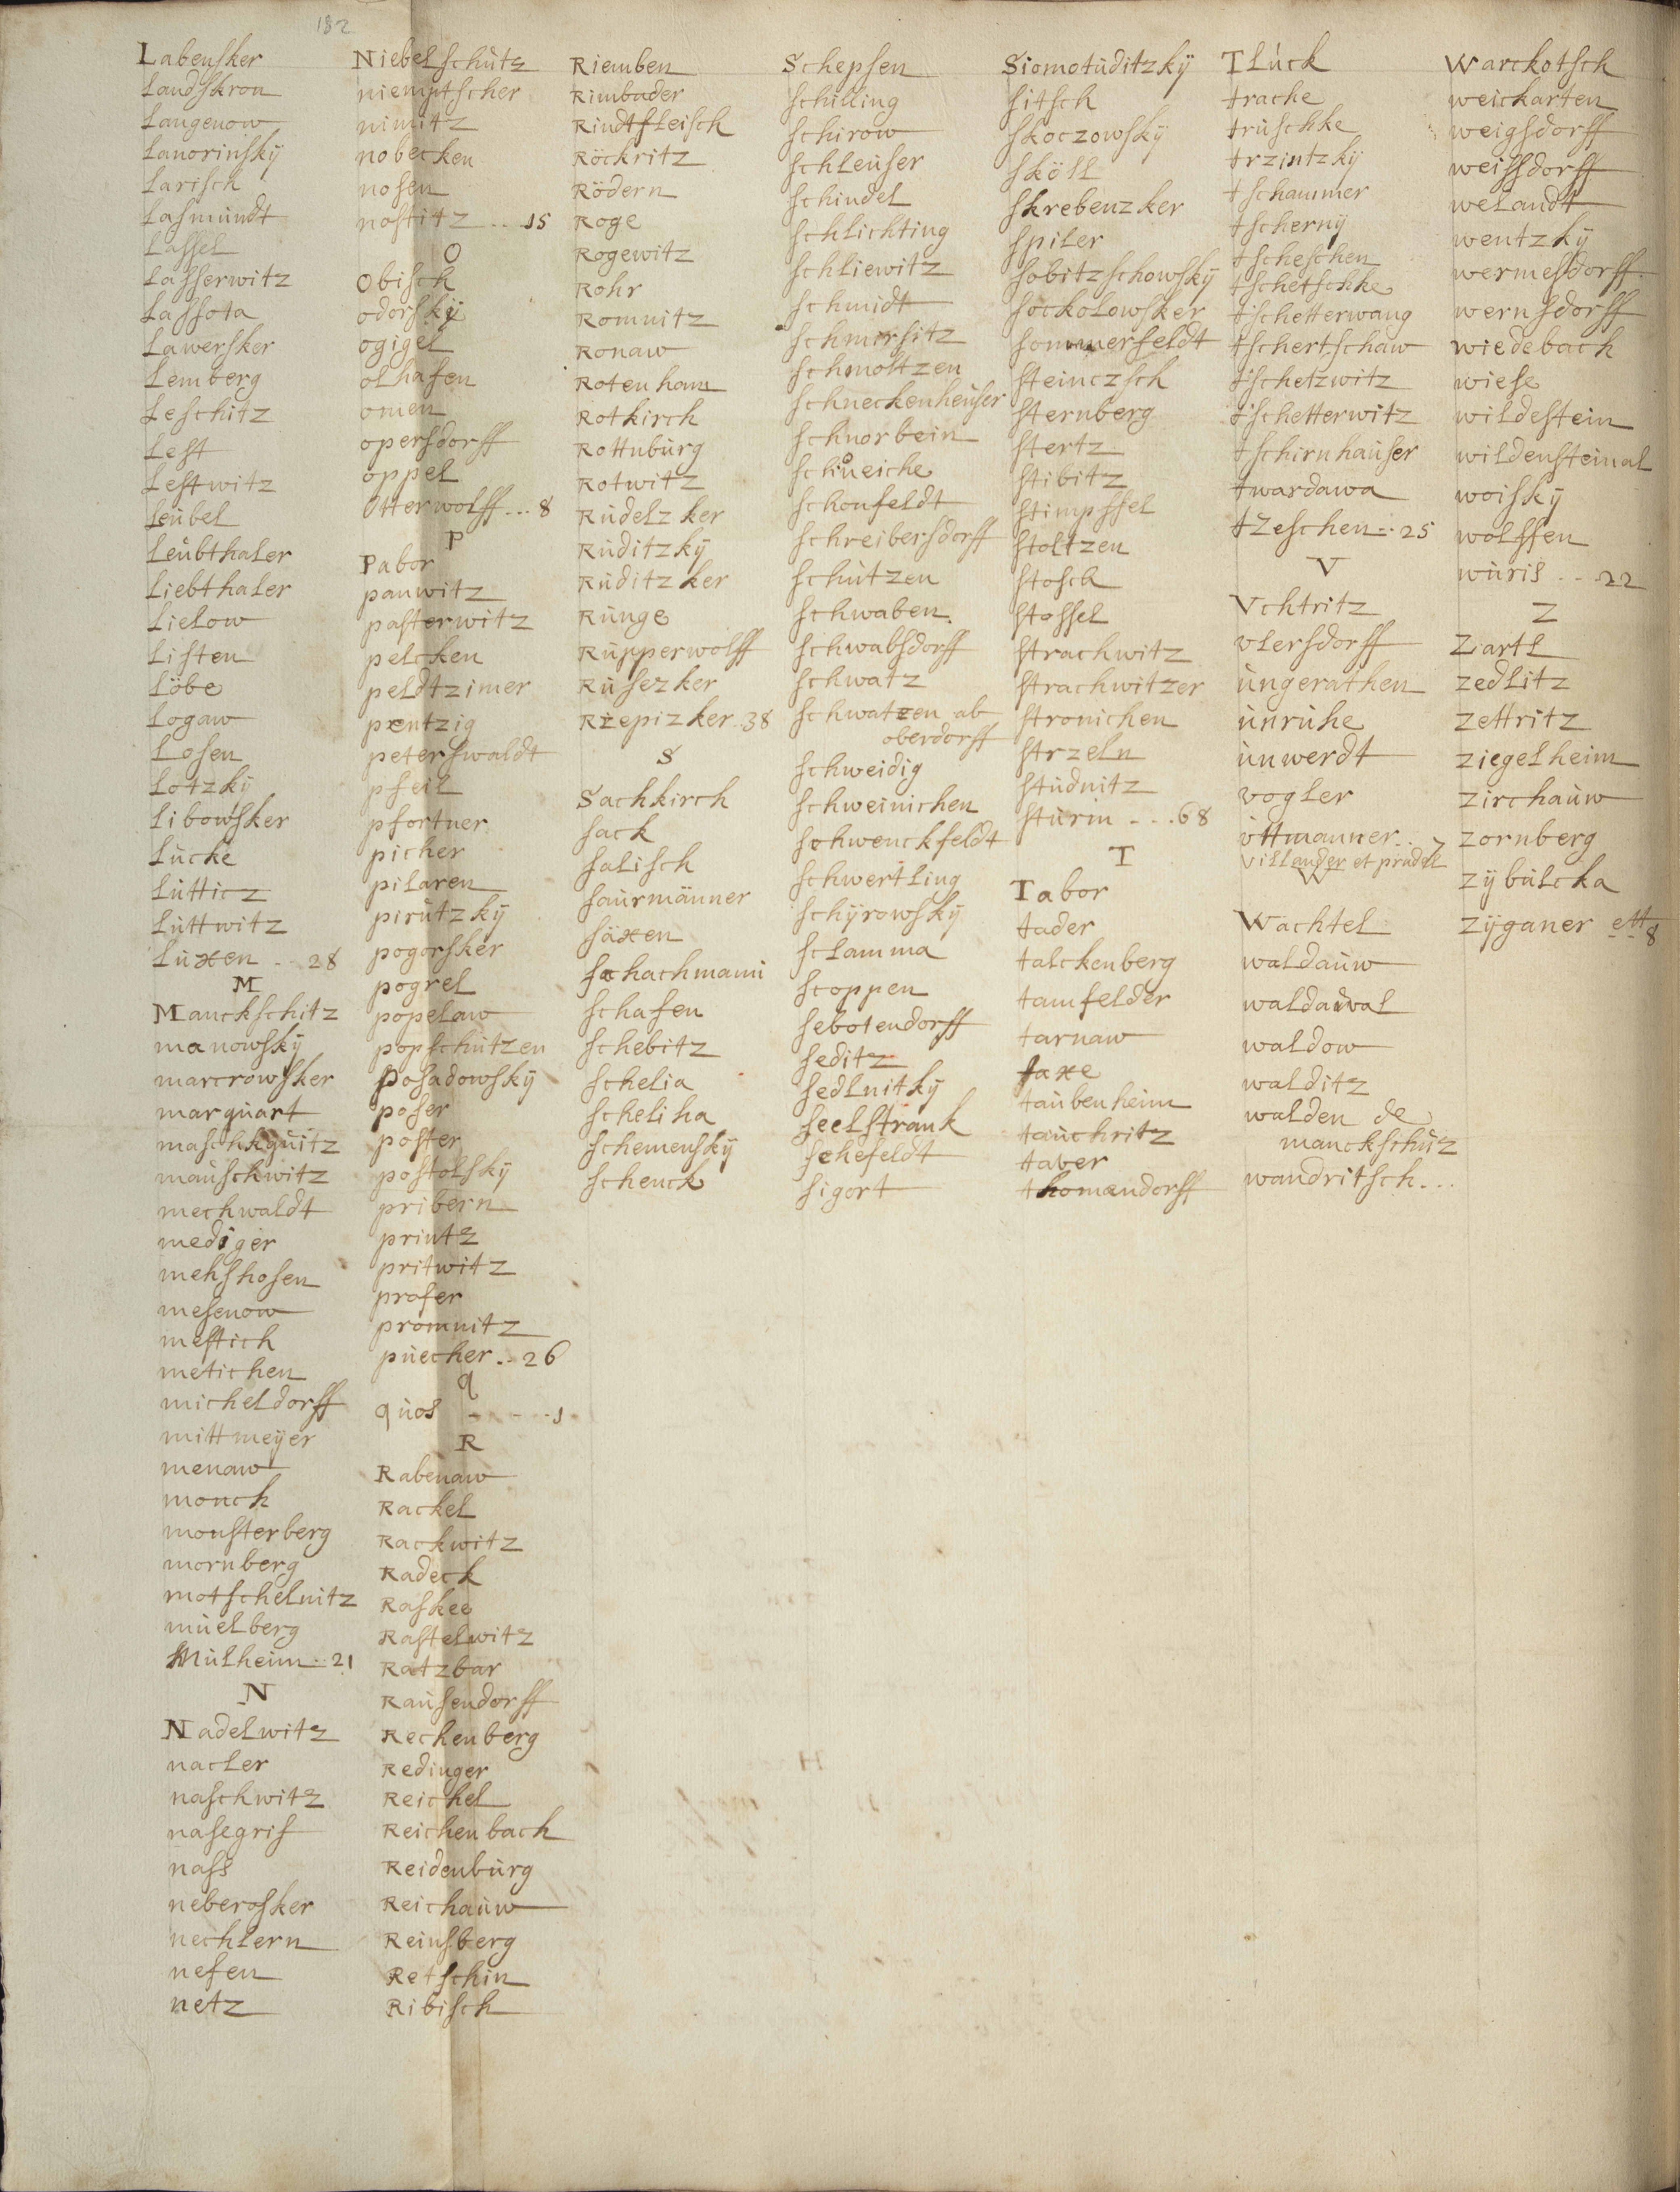 182
Labensker
Landskron
Langenow
Lanorinskÿ
Larisch
Lasmundt
Lassel
Lasserwitz
Lassota
Lawersker
Lemberg
Leschitz
Lest
Lestwitz
Leubel
Leubthaler
Liebthaler
Lielow
Listen
Löbe
Logaw
Losen
Lotzkÿ
Libowsker
Lucke
Lutticz
Luttwitz
Luxen .. 28
M
Manckschitz
manowskÿ
marcrowsker
marquart
maschkquitz
mauschwitz
mechwaldt
mediger
mehshosen
mesenow
mestich
metichen
micheldorff
mittmeÿer
menaw
monch
monsterberg
mornberg
motschelnitz
muelberg
Mulheim .. 21
N
Nadelwitz
nacler
naschwitz
nasegris
nass
neberosker
nechlern
nefen
netz
Niebelschutz
niemptscher
nimitz
nobecken
nosen
nostitz ... 15
O
Obisch
odorskÿ
ogigel
olhafen
omen
opersdorff
oppel
Otterwolff ... 8
P
Pabor
panwitz
pasterwitz
pelcken
peldtzimer
pentzig
peterswaldt
pfeil
pfortner
picher
pilaren
pirutzkÿ
pogorsker
pogrel
popelaw
popschutzen
posadowskÿ
poser
poster
postolskÿ
pribern
printz
pritwitz
profer
promnitz
puecher .. 26
q
quos - - - - 1
R
Rabenaw
Rackel
Rackwitz
Radeck
Raskee
Rastelwitz
Ratzbar
Rausendorff
Rechenberg
Redinger
Reichel
Reichenbach
Reidenburg
Reichauw
Reinsberg
Retschin
Ribisch
Riemben
Rimbader
Rindtfleisch
Röckritz
Rödern
Roge
Rogewitz
Rohr
Romnitz
Ronaw
Rotenham
Rotkirch
Rottnburg
Rotwitz
Rudelzker
Ruditzkÿ
Ruditzker
Runge
Rupperwolff
Rusezker
Rzepizker . 38
S
Sachkirch
sack
salisch
saurmänner
säxen
schachmann
schafen
schebitz
schelia
scheliha
schemenskÿ
schenck
Schepsen
schilling
schirow
schleuser
schindel
schlichting
schliewitz
schmidt
schmirsitz
schmoltzen
schneckenheuser
schnorbein
schöneiche
schonfeldt
schreibersdorff
schutzen
schwaben
schwabsdorff
schwatz
schwatzen ab
oberdorff
schweidig
schweinichen
schwenckfeldt
schwertling
schÿrowskÿ
sclamma
scoppen
sebotendorff
seditz
sedlnitkÿ
seelstrank
sehefeldt
sigort
Siomotuditzkÿ
sitsch
skoczowskÿ
sköll
skrebenzker
spiler
sobitzschowskÿ
sockolowsker
sommerfeldt
steinczsch
sternberg
stertz
stibitz
stimpssel
stoltzen
stosch
stossel
strachwitz
strachwitzer
stronichen
strzeln
studnitz
sturm - .. 68
T
Tabor
tader
talckenberg
tamfelder
tarnaw
taxe
taubenheim
tauchritz
taver
thomandorff
Tluck
trache
truschke
trzintzkÿ
tschammer
tschernÿ
tscheschen
tschetschke
tschetterwang
tschertschaw
tschetzwitz
tschetterwitz
tschirnhauser
twardawa
tzeschen .. 25
V
Vchtritz
vlersdorff
ungerathen
unruhe
unwerdt
vogler
ottmanner .. 7
villander et pradel
W
Wachtel
waldauw
waldauwal
waldow
walditz
walden de
manckschuz
wandritsch ...
Warckotsch
weickarten
weigsdorff
weissdorff
welandt
wentzkÿ
wermesdorff
wernsdorff
wiedebach
wiese
wildestein
wildensteinal
woiskÿ
wolssen
wuris .. 22
Z
Zartl
zedlitz
zettritz
ziegelheim
zirchauw
zornberg
zÿbulcka
zÿganer ett
8